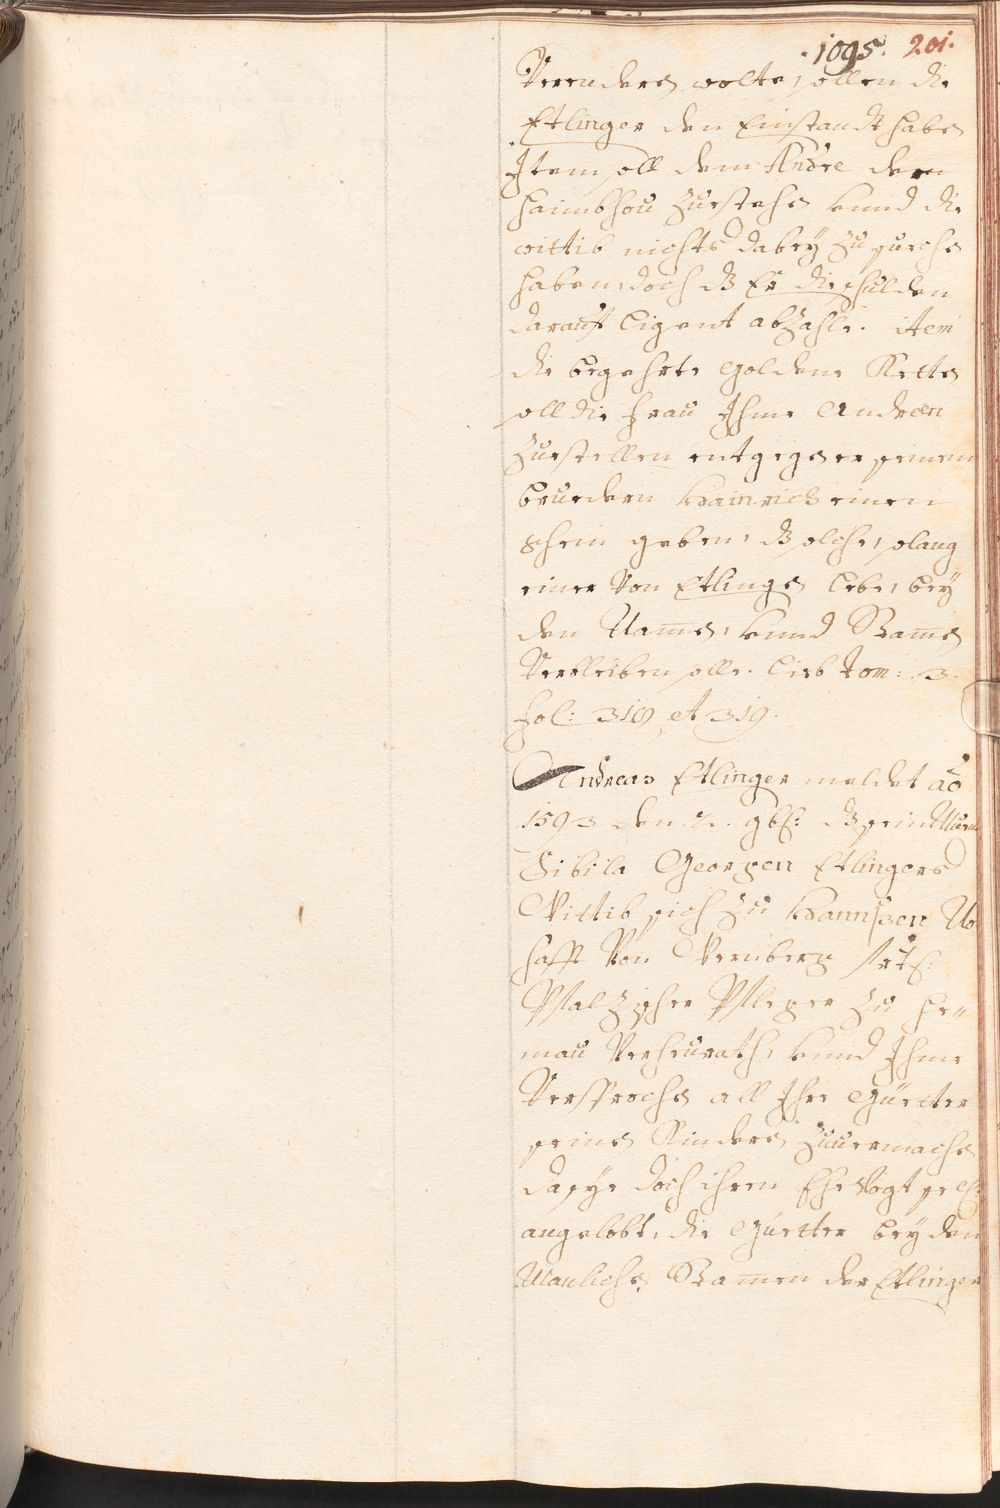 .1095. 201.
Verendern wolte, sollen die
Etlinger den Einstandt haben
Item soll dem Andre der
haimbhou Zuestehen vnnd die
wittib nichts dabey Zu suechen
haben, doch dz Er die schulden
darauff ligent abZahle. item
die begehrte Goldene Ketten
soll die Frau Ihme Andreen
Zuestellen entgegen er seinem
bruedern Hainrich einen
schein geben, dz solche, solang
einer Von Etlingen lebe, bey
den Namen, vnnd Stamen
Verbleiben solle. lieb tom: 3.
fol: 318 et 319.
Andreas Etlinger meldet ao
1593 den 9br: dz sein Muem
Sibila Georgen Etlingers
Wittib sich Zu Hannsßen
hafft Von Wernberg
Pfalzischer Pfleger Zu He=
mau Verheurath, vnnd Ihme
Versprochen all Ihre Güetter
seinen Kindern Zuuermachen
da sye doch ihrem Ehe Vogt seel:
angelobt, die Güetter bey dem
Manlichen Stamen der Etlinger